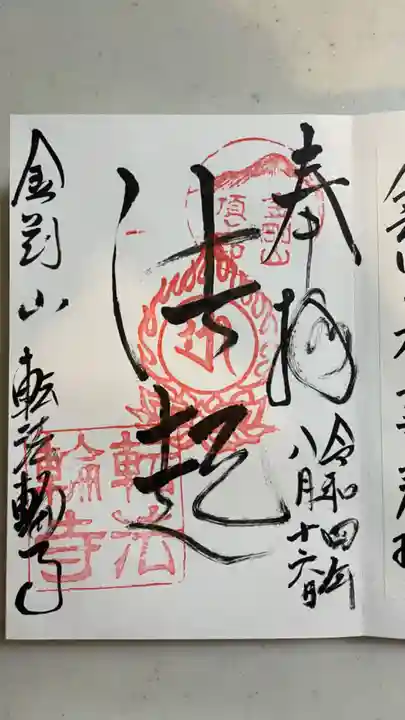 奉拝
令和四年
八月十六日
法起
金剛山 転法輪寺
金剛山
頂
転法
輪寺